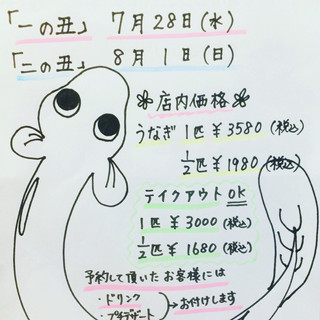 「一の丑」 7月28日(水)
「二の丑」 8月1日(日)
店内価格
うなぎ 1匹 ¥3580(税込)
1/2匹 ¥1980(税込)
テイクアウト OK
1匹 ¥3000(税込)
1/2匹 ¥1680(税込)
予約して頂いたお客様には
・ドリンク
・プチデザート
→お付けします